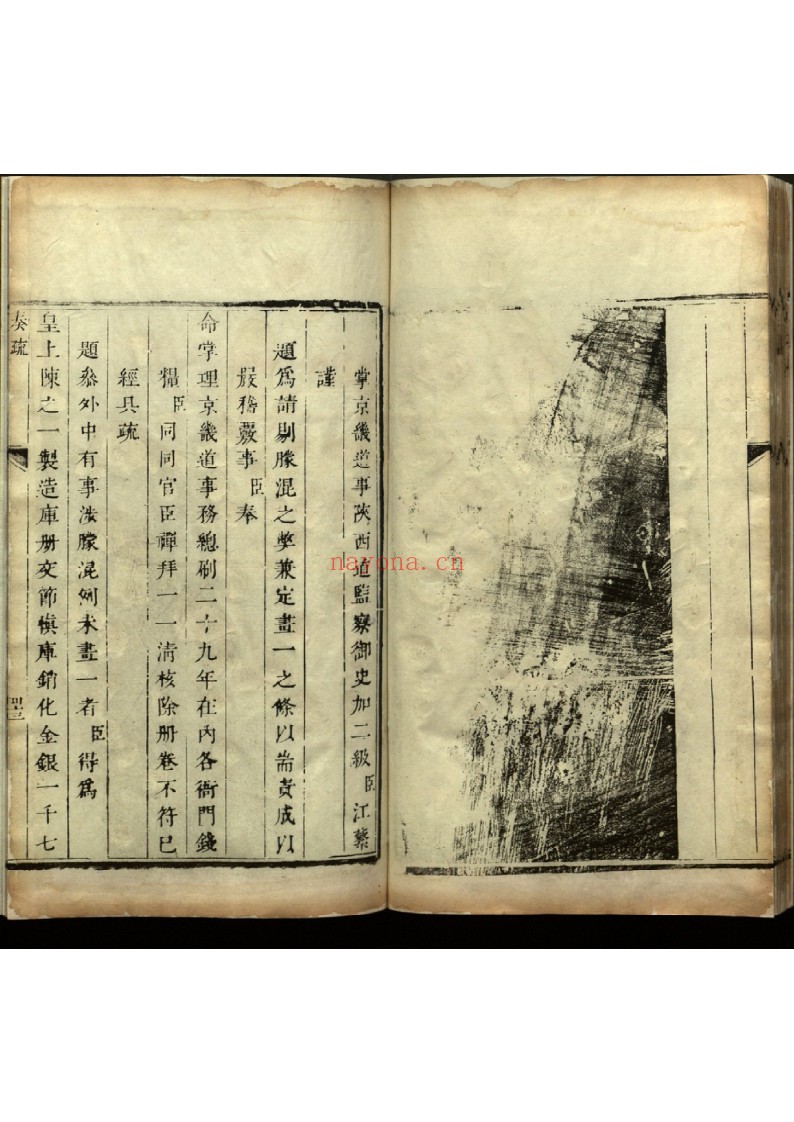 掌京畿道事陜西道監察御史加二級臣江蘩
謹
題爲請剔朦混之弊兼定畫一之條以耑責成以
嚴稽覈事臣奉
命掌理京畿道事務總刷二十九年在內各衙門錢
糧臣同同官臣禪拜一一清核除册卷不符已
經具疏
題叅外中有事涉朦混例未畫一者臣得爲
皇上陳之一製造庫册交節愼庫銷化金銀一千七
奏疏
四三
nayona.cn